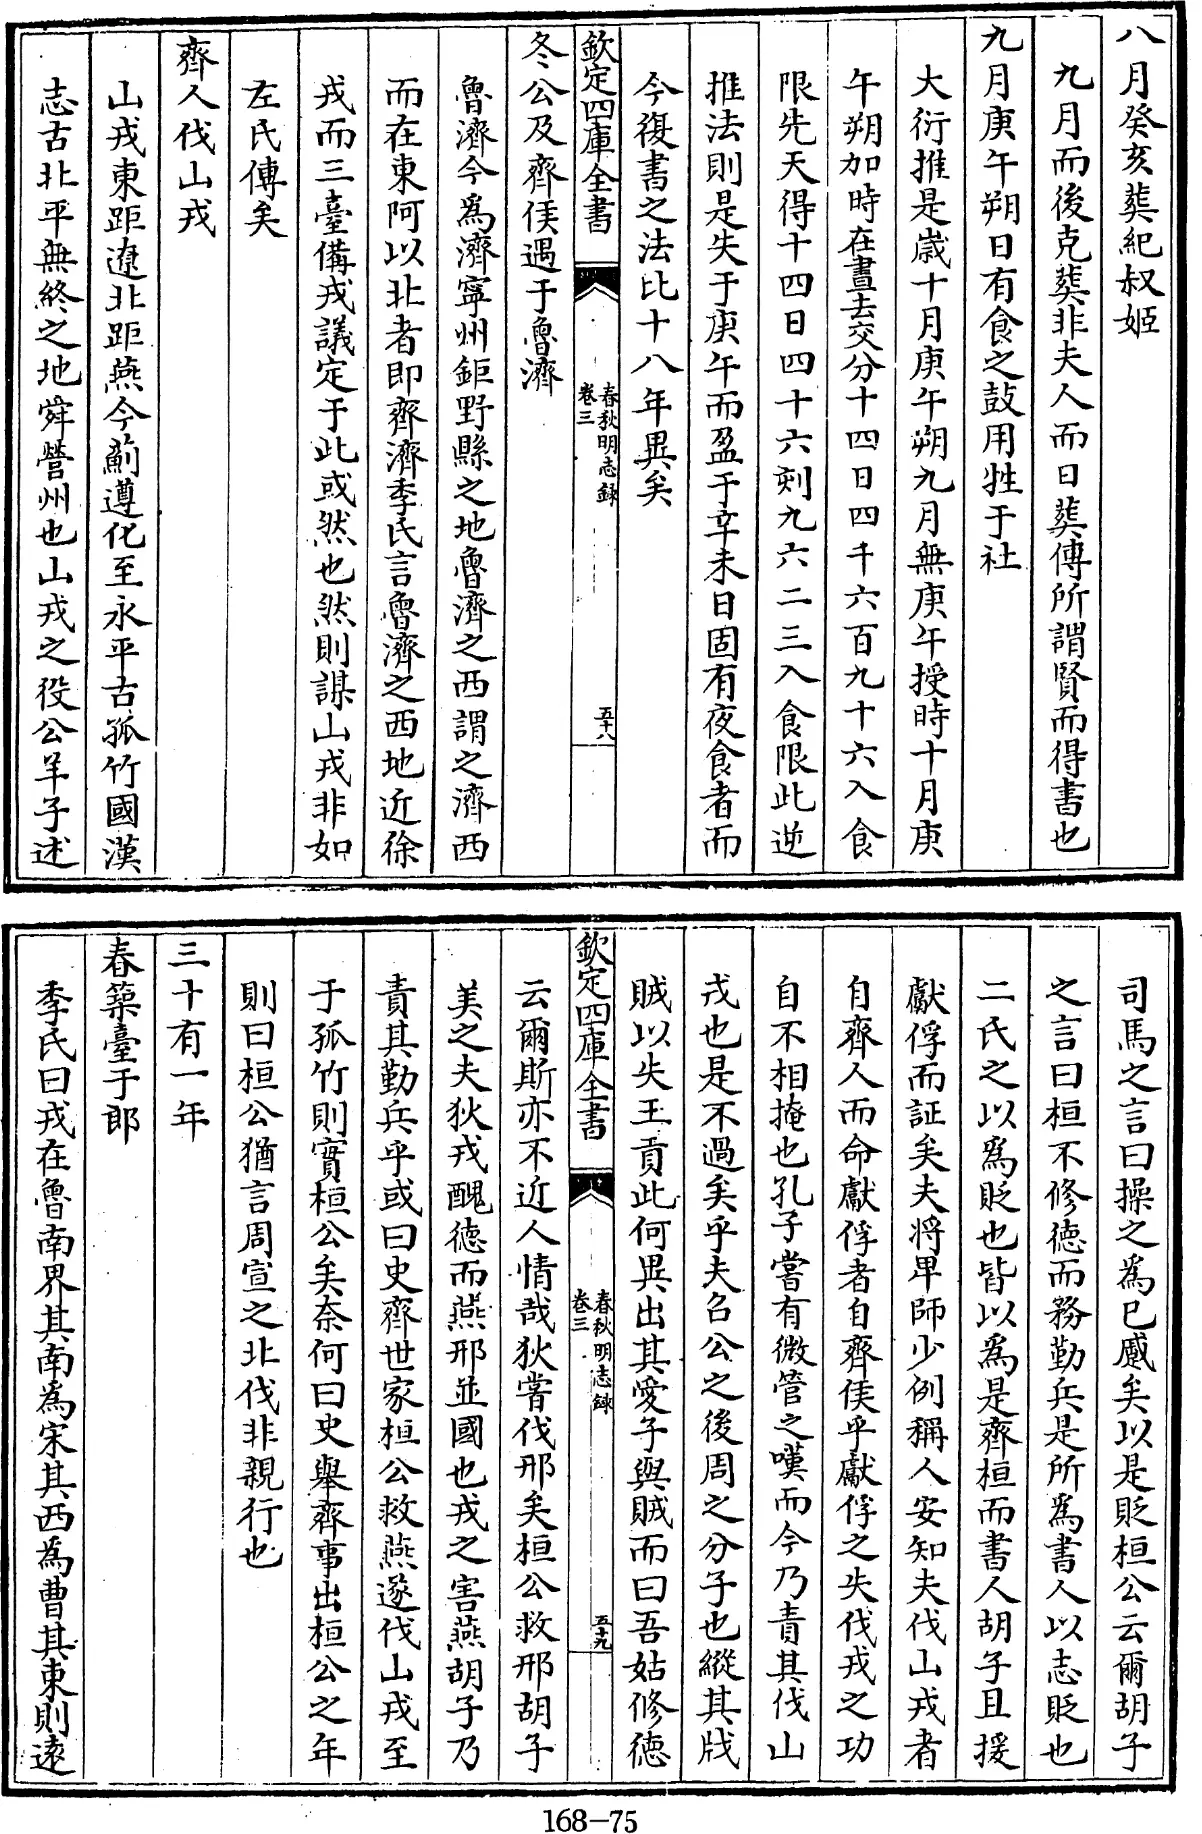 八月癸亥葬紀叔姬
九月而後克葬非夫人而日葬傳所謂賢而得書也
九月庚午朔日有食之鼓用牲于社
大衍推是歲十月庚午朔九月無庚午授時十月庚
午朔加時在晝去交分十四日四千六百九十六入食
限先天得十四日四十六刻九六二三入食限此逆
推法則是失于庚午而盈于辛未日固有夜食者而
今復書之法比十八年異矣
欽定四庫全書
春秋明志錄
卷三
五十八
冬公及齊侯遇于魯濟
魯濟今爲濟寧州鉅野縣之地魯濟之西謂之濟西
而在東阿以北者即齊濟李氏言魯濟之西地近徐
戎而三臺備戎議定于此或然也然則謀山戎非如
左氏傳矣
齊人伐山戎
山戎東距遼北距燕今薊遵化至永平古孤竹國漢
志古北平無終之地舜營州也山戎之役公羊子述
司馬之言曰操之爲已蹙矣以是貶桓公云爾胡子
之言曰桓不修德而務勤兵是所爲書人以志貶也
二氏之以爲貶也皆以爲是齊桓而書人胡子且援
獻俘而証矣夫將卑師少例稱人安知夫伐山戎者
自齊人而命獻俘者自齊侯乎獻俘之失伐戎之功
自不相掩也孔子嘗有微管之嘆而今乃責其伐山
戎也是不過矣乎夫召公之後周之分子也縱其戕
賊以失王貢此何異出其愛子與賊而曰吾姑修德
欽定四庫全書
春秋明志錄
卷三
五十九
云爾斯亦不近人情哉狄嘗伐邢矣桓公救邢胡子
美之夫狄戎醜德而燕邢並國也戎之害燕胡子乃
責其勤兵乎或曰史齊世家桓公救燕遂伐山戎至
于孤竹則實桓公矣奈何曰史舉齊事出桓公之年
則曰桓公猶言周宣之北伐非親行也
三十有一年
春築臺于郎
季氏曰戎在魯南界其南爲宋其西爲曹其東則遠
168-75